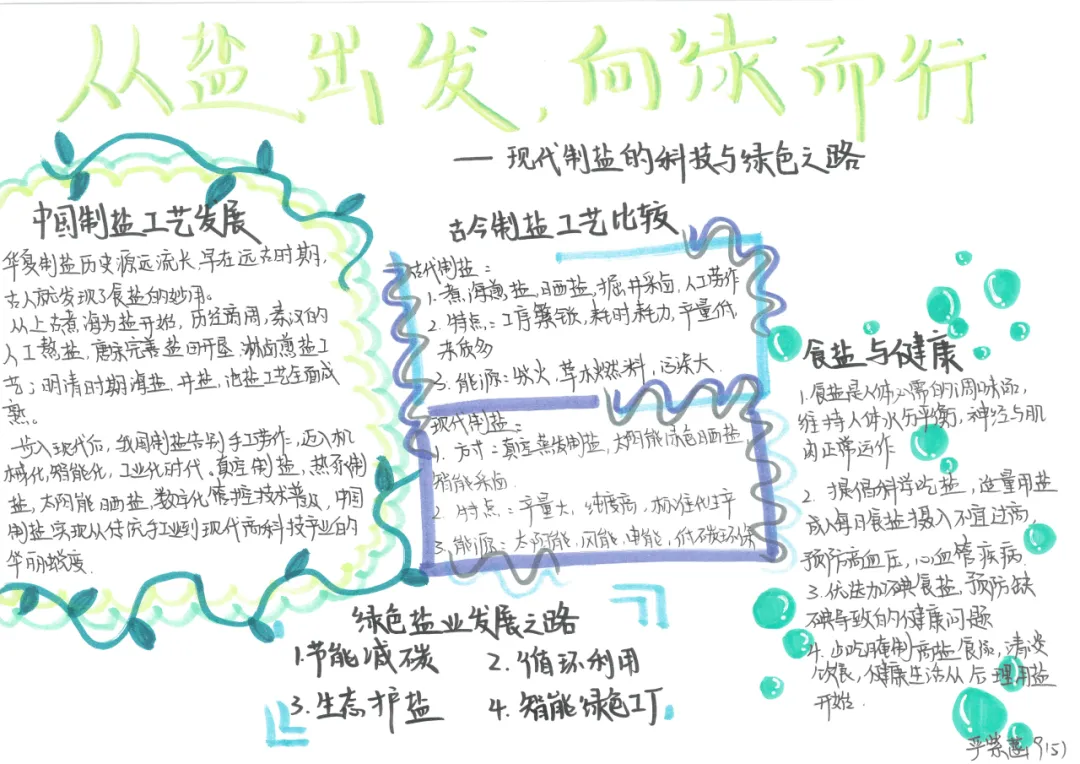 从盐出发,向绿而行
— 现代制盐的科技与绿色之路
中国制盐工艺发展
华夏制盐历史源远流长,早在远古时期,
古人就发现了食盐的妙用。
从上古煮海为盐开始,历经商周,秦汉的
人工熬盐,唐宋完善盐田开垦 淋卤煎盐工
艺;明清时期海盐,井盐,池盐工艺全面成
熟。
步入现代后,我国制盐告别手工劳作,迈入机
械化,智能化,工业化时代。真空制盐,热泵制
盐,太阳能晒盐,数字化管控技术普及,中国
制盐实现从传统手工业到现代高科技产业的
华丽蜕变.
古今制盐工艺比较
古代制盐:
1.煮海煎盐,日晒盐,掘井采卤,人工劳作
2.特点:工序繁杂,耗时耗力,产量低,
杂质多
3.能源:柴火,草木燃料,污染大.
现代制盐:
1.方式:真空蒸发制盐,太阳能绿色晒盐
智能采卤.
2.特点:产量大,纯度高,标准化生产
3.能源:太阳能,风能,电能,低碳环保
食盐与健康
1.食盐是人体必需的调味品,
维持人体水分平衡,神经与肌
肉正常运作
2.提倡科学吃盐,适量用盐
成人每日食盐摄入不宜过高,
预防高血压,心血管疾病.
3.优选加碘食盐,预防缺
碘导致的健康问题
4.少吃腌制高盐食品,清淡
饮食,健康生活从合理用盐
开始.
绿色盐业发展之路
1.节能减碳 2.循环利用
3.生态护盐 4.智能绿色工厂.
严紫 9(5)